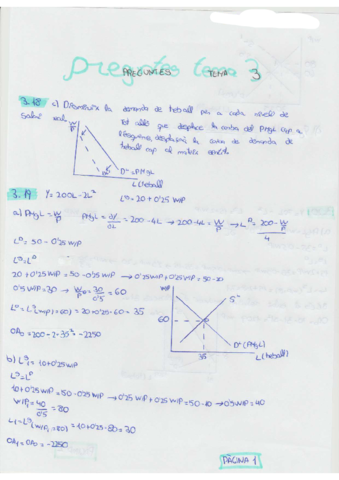 preguntes tema 3
PREGUNTES TEMA 3
3.18 c) Disminuix la demanda de treball per a cada nivell de
salari real. Tot allò que desplace la corba del PMgL cap a
l'esquerra, desplaçarà la corba de demanda de
treball cap al mateix sentit.
Dᴺ = PMgL
L (treball)
3.19 Y = 200L - 2L² Lˢ = 20 + 0'25 W/P
a) PMgL = W/P PMgL = ∂Y/∂L = 200 - 4L → 200 - 4L = W/P → Lᴰ = (200 - W/P)/4
Lᴰ = 50 - 0'25 W/P
Lˢ = Lᴰ
20 + 0'25 W/P = 50 - 0'25 W/P → 0'25 W/P + 0'25 W/P = 50 - 20
0'5 W/P = 30 → W/P = 30/0'5 = 60
= 20 + 0'25 · 60 = 35
W/P
60
35
Sᴺ
Dᴺ (PMgL)
L (treball)
b) Lˢ₁ = 10 + 0'25 W/P
Lˢ = Lᴰ
10 + 0'25 W/P = 50 - 0'25 W/P → 0'25 W/P + 0'25 W/P = 50 - 10 → 0'5 W/P = 40
W/P₁ = 40/0'5 = 80
L₁ = Lˢ (W/P₁ = 80) = 10 + 0'25 · 80 = 30
PÀGINA 1